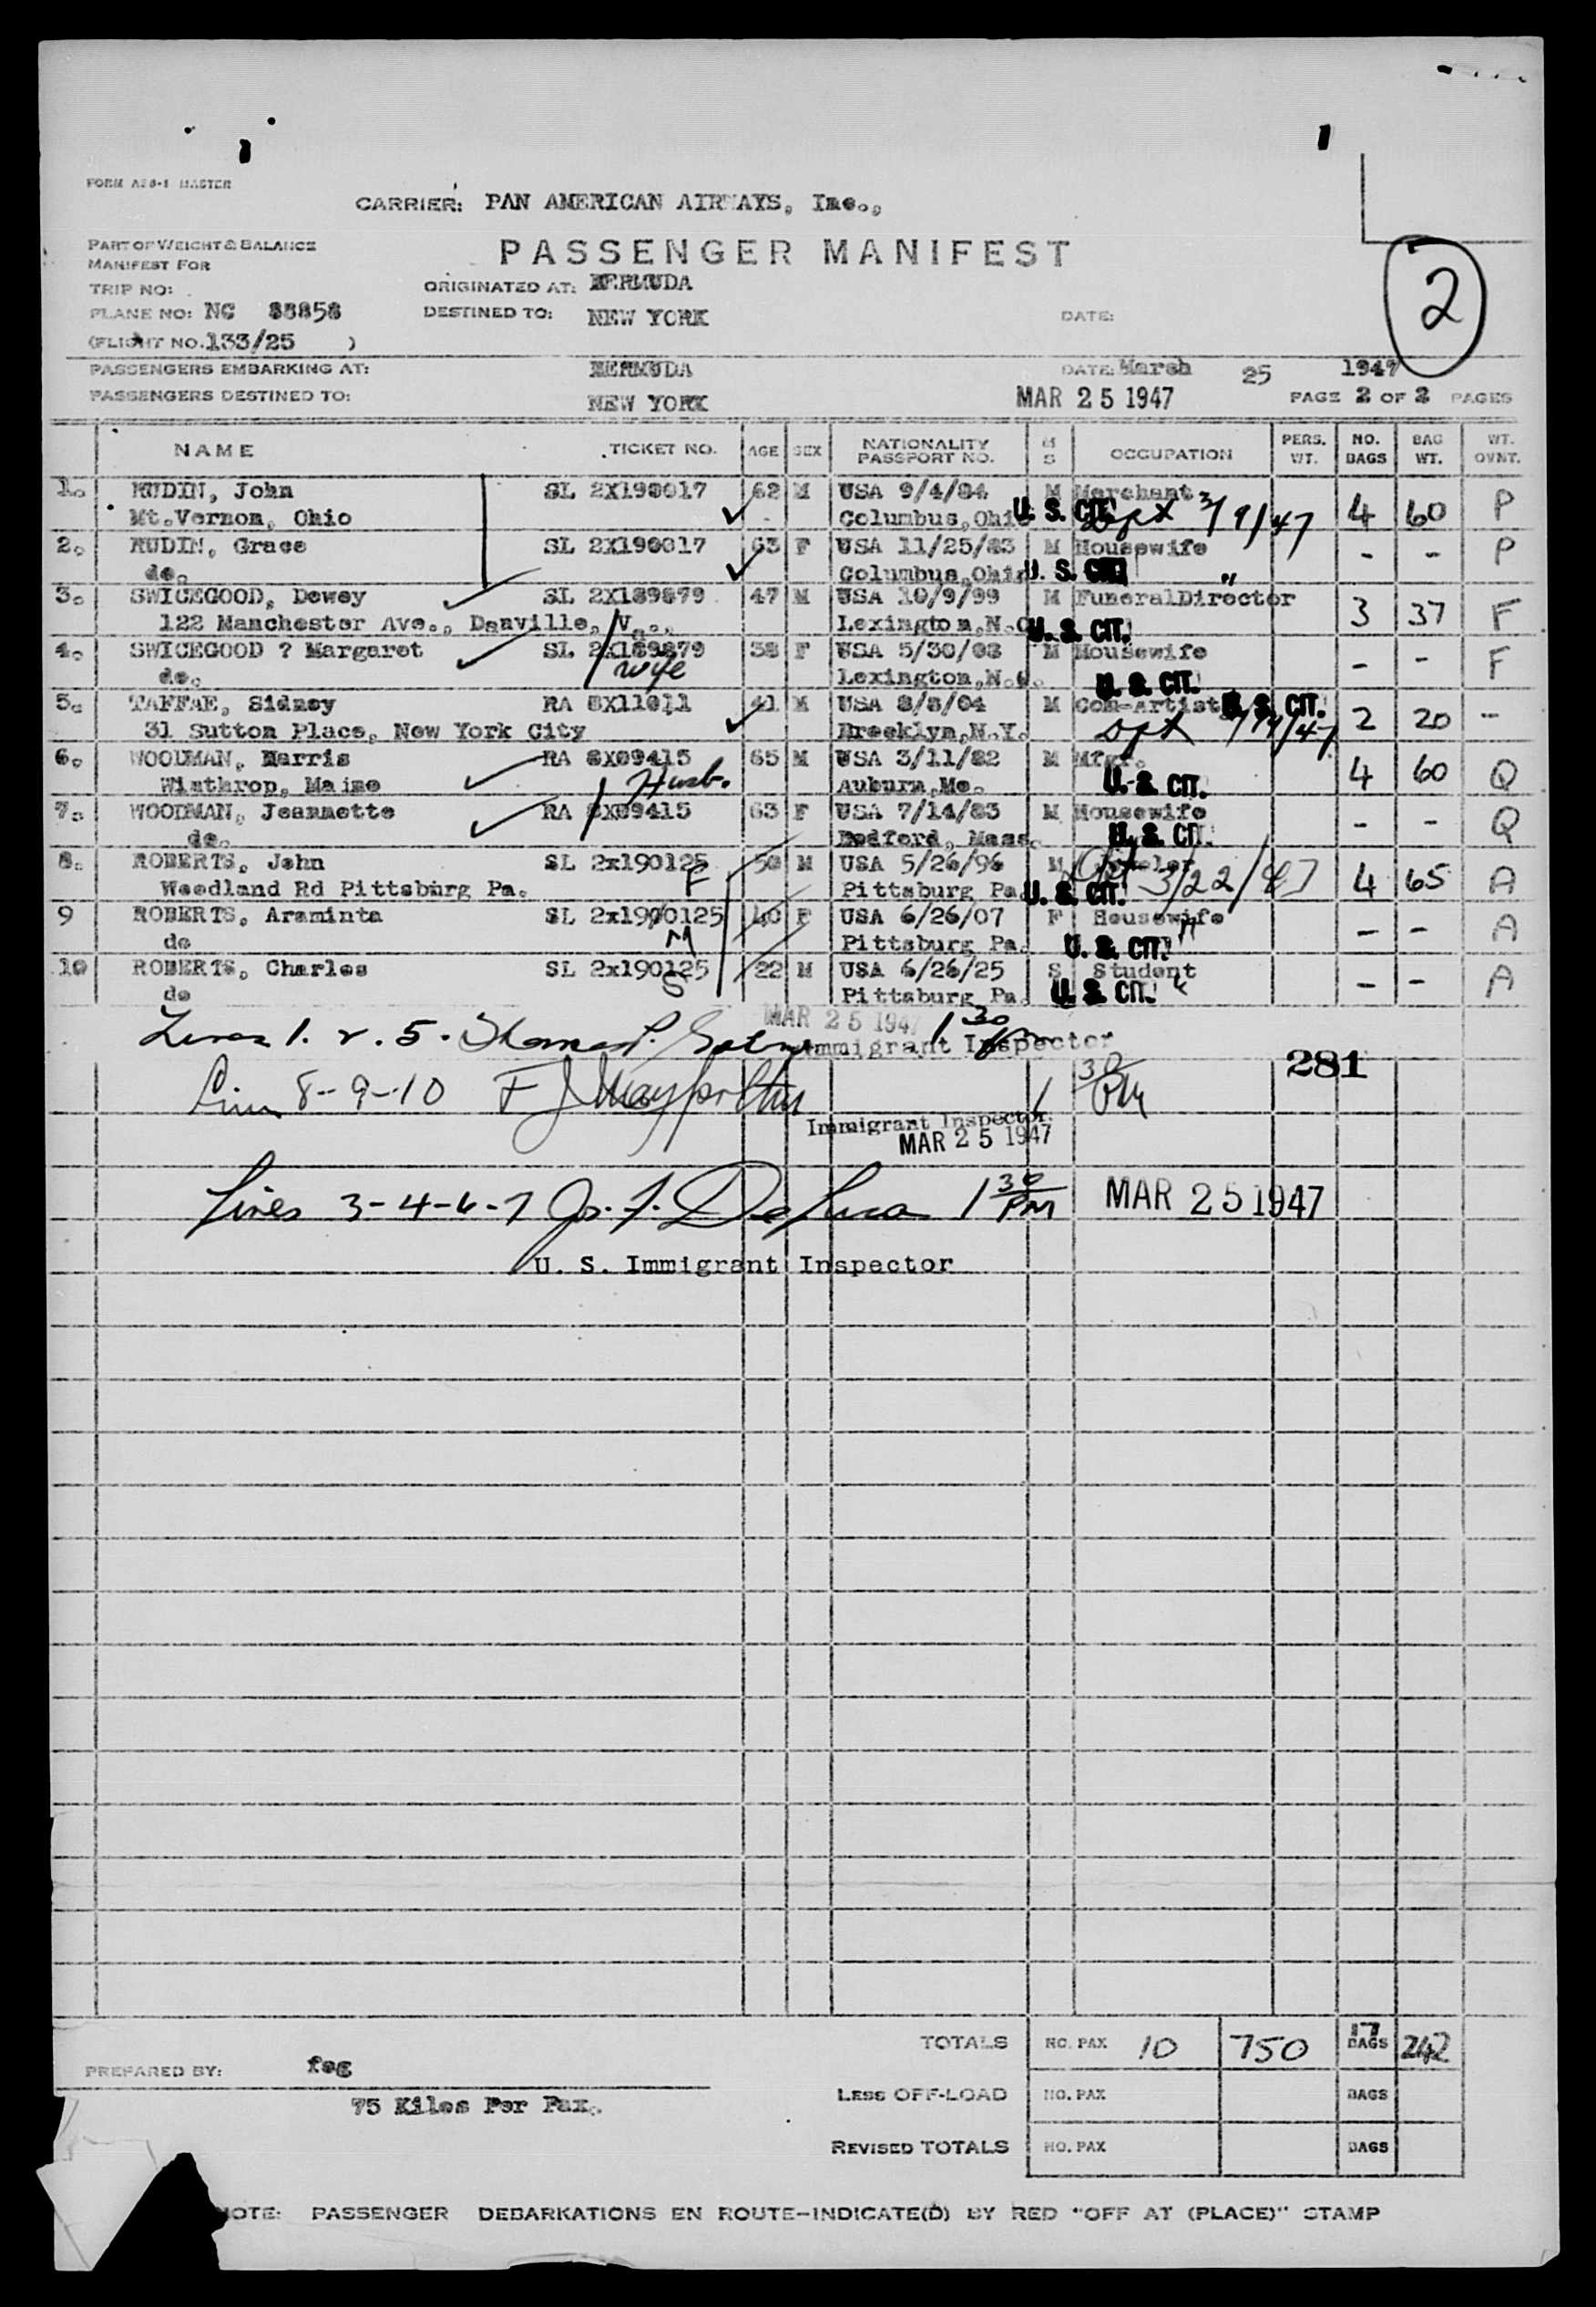 FORM A28-1 MASTER
CARRIER: PAN AMERICAN AIRWAYS, Inc.,
PART OF WEIGHT & BALANCE
MANIFEST FOR
PASSENGER MANIFEST
2
TRIP NO:
ORIGINATED AT: BERMUDA
PLANE NO: NC 88858
DESTINED TO: NEW YORK
DATE:
(FLIGHT NO. 133/25 )
PASSENGERS EMBARKING AT: BERMUDA DATE: March 25 1947
PASSENGERS DESTINED TO: NEW YORK MAR 25 1947 PAGE 2 OF 2 PAGES
NAME TICKET NO. AGE SEX NATIONALITY PASSPORT NO. M S OCCUPATION PERS. WT. NO. BAGS BAG WT. WT. OVNT.
1. RUDIN, John SL 2X190017 62 M USA 9/4/84 M Merchant 4 60 P
Mt.Vernon, Ohio Columbus,Ohio U. S. CIT. Dept 3/9/47
2. RUDIN, Grace SL 2X190017 63 F USA 11/25/83 M Housewife - - P
do. Columbus,Ohio U. S. CIT. "
3. SWICEGOOD, Dewey SL 2X189879 47 M USA 10/9/99 M FuneralDirector 3 37 F
122 Manchester Ave., Danville, Va., Lexington,N.C. U. S. CIT.
4. SWICEGOOD ? Margaret SL 2X189879 38 F USA 5/30/08 M Housewife - - F
do. wife Lexington,N.C. U. S. CIT.
5. TAFFAE, Sidney RA 8X11011 41 M USA 8/8/04 M Com-Artist U. S. CIT. 2 20 -
31 Sutton Place, New York City Brooklyn,N.Y.
6. WOODMAN, Harris RA 8X09415 65 M USA 3/11/82 M Mfgr. 4 60 Q
Winthrop, Maine Husb. Auburn,Me. U. S. CIT.
7. WOODMAN, Jeannette RA 8X09415 63 F USA 7/14/83 M Housewife - - Q
do. Bedford, Mass. U. S. CIT.
8. ROBERTS, John SL 2x190125 50 M USA 5/26/96 M 4 65 A
Woodland Rd Pittsburg Pa. F Pittsburg Pa. U. S. CIT. 3/22/47
9 ROBERTS, Araminta SL 2x190125 40 F USA 6/26/07 F Housewife - - A
do M Pittsburg Pa. U. S. CIT. "
10 ROBERTS, Charles SL 2x190125 22 M USA 6/26/25 S Student - - A
do S Pittsburg Pa. U. S. CIT. "
MAR 25 1947
Lines 1. 2. 5. Thomas P. 1 30 pm
Immigrant Inspector
281
Lines 8-9-10 F J 1 30 PM
Immigrant Inspector
MAR 25 1947
Lines 3-4-6-7 Jos. F. DeLuca 1 30 PM MAR 25 1947
U. S. Immigrant Inspector
TOTALS NO. PAX 10 750 17 BAGS 242
PREPARED BY: feg
LESS OFF-LOAD NO. PAX BAGS
75 Kilos Per Pax.
REVISED TOTALS NO. PAX BAGS
NOTE: PASSENGER DEBARKATIONS EN ROUTE-INDICATE(D) BY RED "OFF AT (PLACE)" STAMP